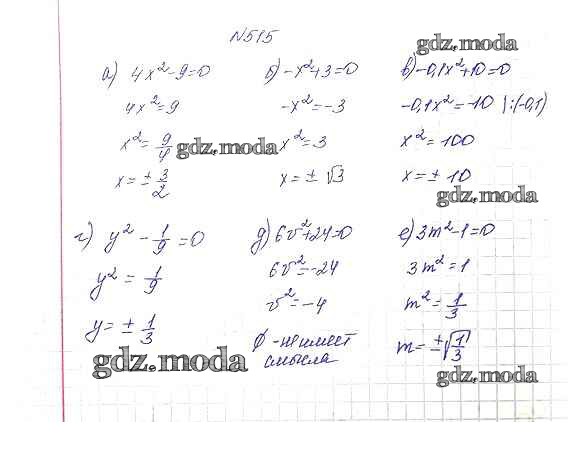 N515
gdz.moda
а) 4x²-9=0
4x²=9
x²=9/4
x=±3/2
gdz.moda
б) -x²+3=0
-x²=-3
x²=3
x=±√3
в) -0,1x²+10=0
-0,1x²=-10 |:(-0,1)
x²=100
x=±10
gdz.moda
г) y²-1/9=0
y²=1/9
y=±1/3
gdz.moda
д) 6v²+24=0
6v²=-24
v²=-4
∅ - не имеет
смысла
е) 3m²-1=0
3m²=1
m²=1/3
m=±√1/3
gdz.moda